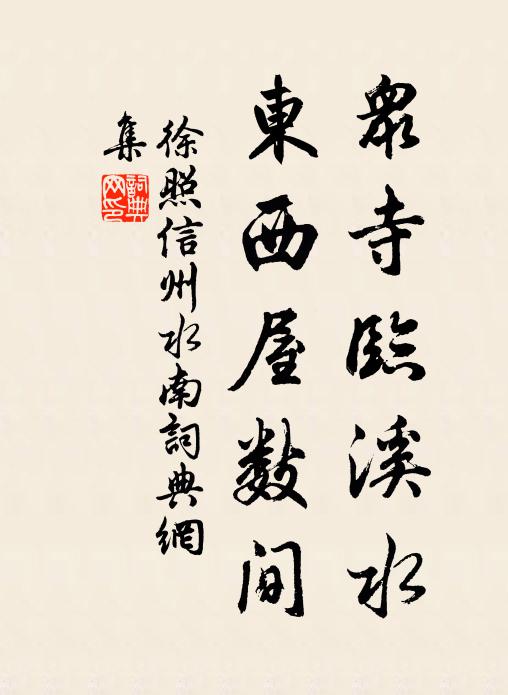 眾寺臨溪水
東西屋數间
徐照信州水南詞典網
集
詞典網印